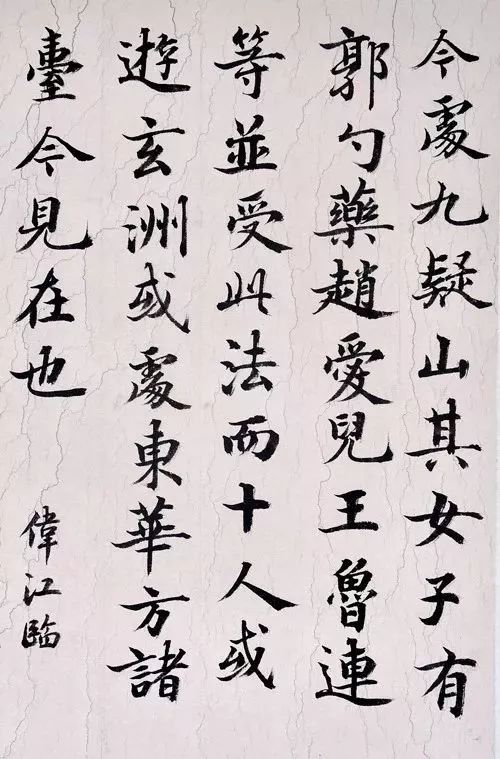 今處九疑山其女子有
郭勺藥趙愛兒王魯連
等並受此法而十人或
遊玄洲或處東華方諸
臺今見在也
偉江臨